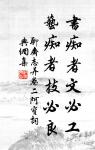 書痴者文必工
藝痴者技必良
聊齋志弄卷二阿寶詞
典網集